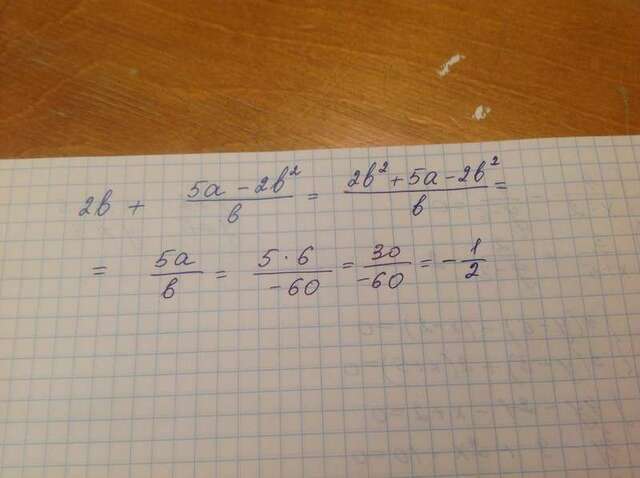 2b + (5a - 2b²)/b = (2b² + 5a - 2b²)/b =
= 5a/b = (5 · 6)/(-60) = 30/(-60) = - 1/2